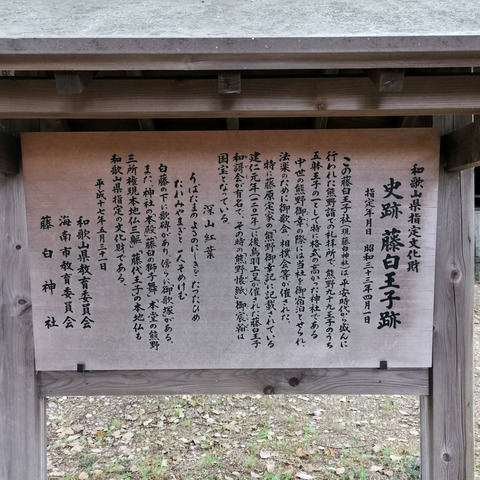 和歌山県指定文化財
史跡 藤白王子跡
指定年月日 昭和三十三年四月一日
この藤白王子社(現、藤白神社)は、平安時代から盛んに
行われた熊野詣での礼拝所で、熊野九十九王子のうち
五躰王子の一として特に格式の高かった神社である
中世の熊野御幸の際には当社を御宿泊とせられ、
法楽のために御歌会、相撲会等が催された。
特に藤原定家の熊野御幸記に記載されている
建仁元年(一二〇一)に後鳥羽上皇が催された藤白王子
和謌会が有名で、その時の「熊野懐紙」(御宸翰)は
国宝となっている。
深山紅葉
うばたまのよるのにしきを
たれみやまぎと一人そめけむ
白藤の下に歌碑があり、傍らに御歌塚がある。
また、神社の本殿、藤白の獅子舞、本堂の熊野
三所権現本地仏三躯、藤代王子の本地仏も
和歌山県指定の文化財である。
平成十七年五月三十一日
和歌山県教育委員会
海南市教育委員会
藤白神社